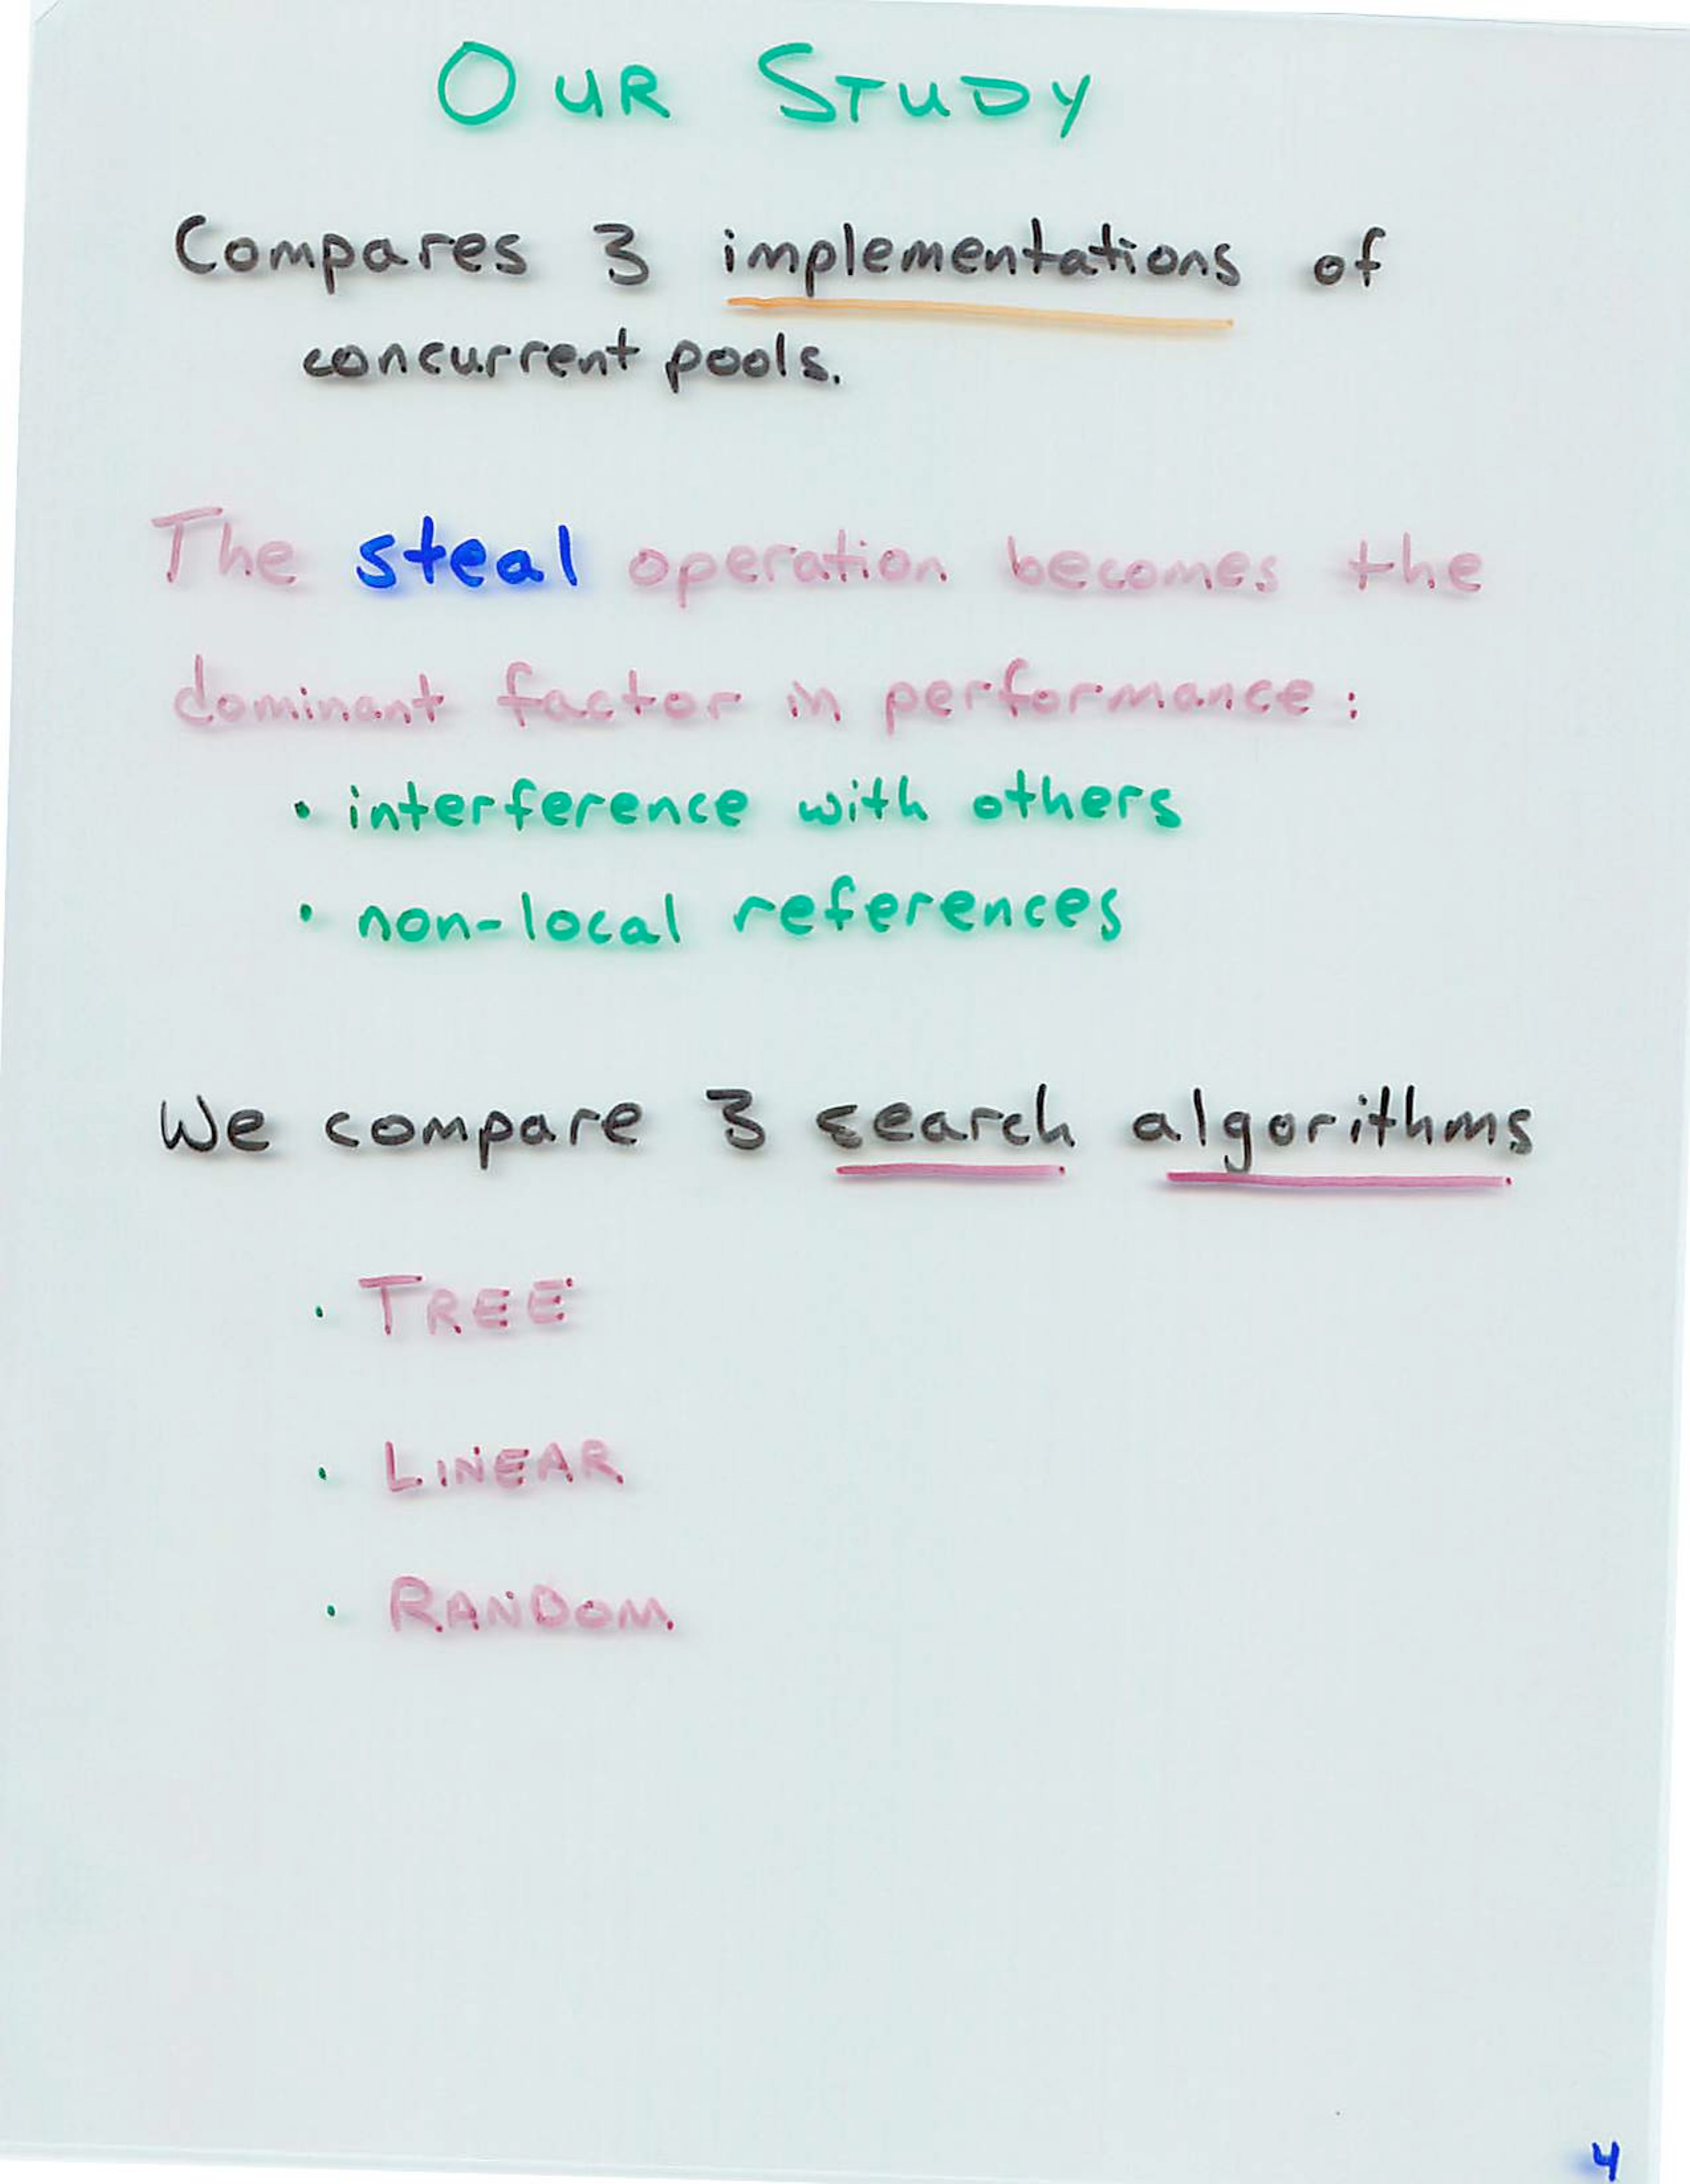 OUR STUDY
Compares 3 implementations of
concurrent pools.
The steal operation becomes the
dominant factor in performance:
• interference with others
• non-local references
We compare 3 search algorithms
• TREE
• LINEAR
• RANDOM
4